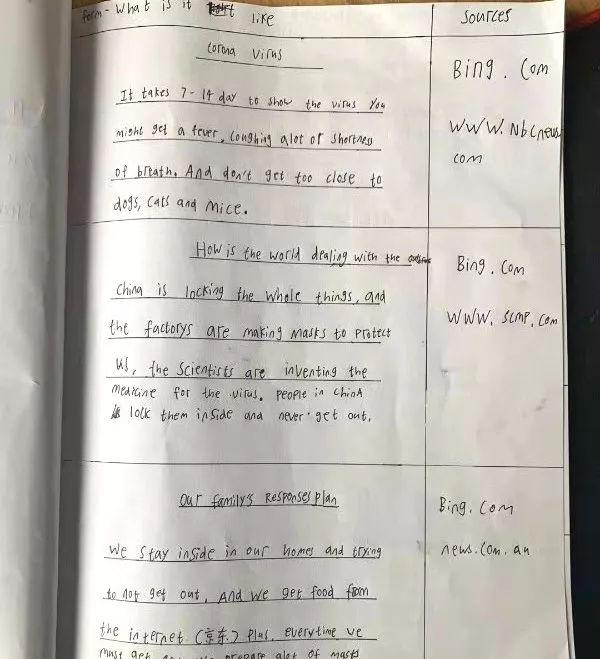 form- What is it like
Sources
Corona Virus
Bing. Com
It takes 7-14 day to show the virus You
might get a fever, coughing alot or shortness
WWW.Nbcnews.
com
of breath. And don't get too close to
dogs, cats and mice.
How is the world dealing with the
Bing. Com
China is locking the whole things, and
the factorys are making masks to protect
WWW. scmp. com
us, the scientists are inventing the
medicine for the virus. People in China
lock them inside and never get out.
Our family's Responses plan
Bing. Com
We stay inside in our homes and trying
news. com. au
to not get out. And we get food from
the internet (京东) Plus, everytime we
must get prepare alot of masks